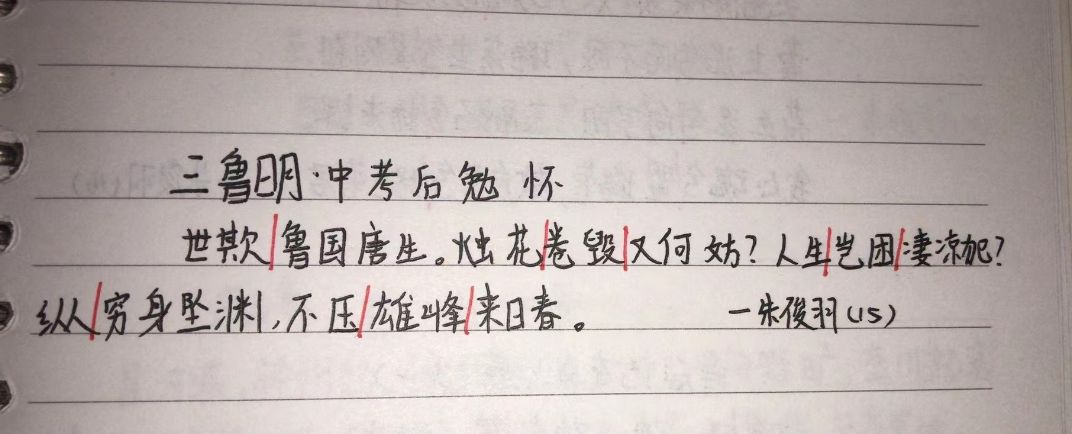 三鲁明·中考后勉怀
世欺鲁国唐生。烛花卷毁又何妨？人生岂困凄凉地？
纵穷身坠渊，不压雄峰来日春。 —朱俊羽(15)